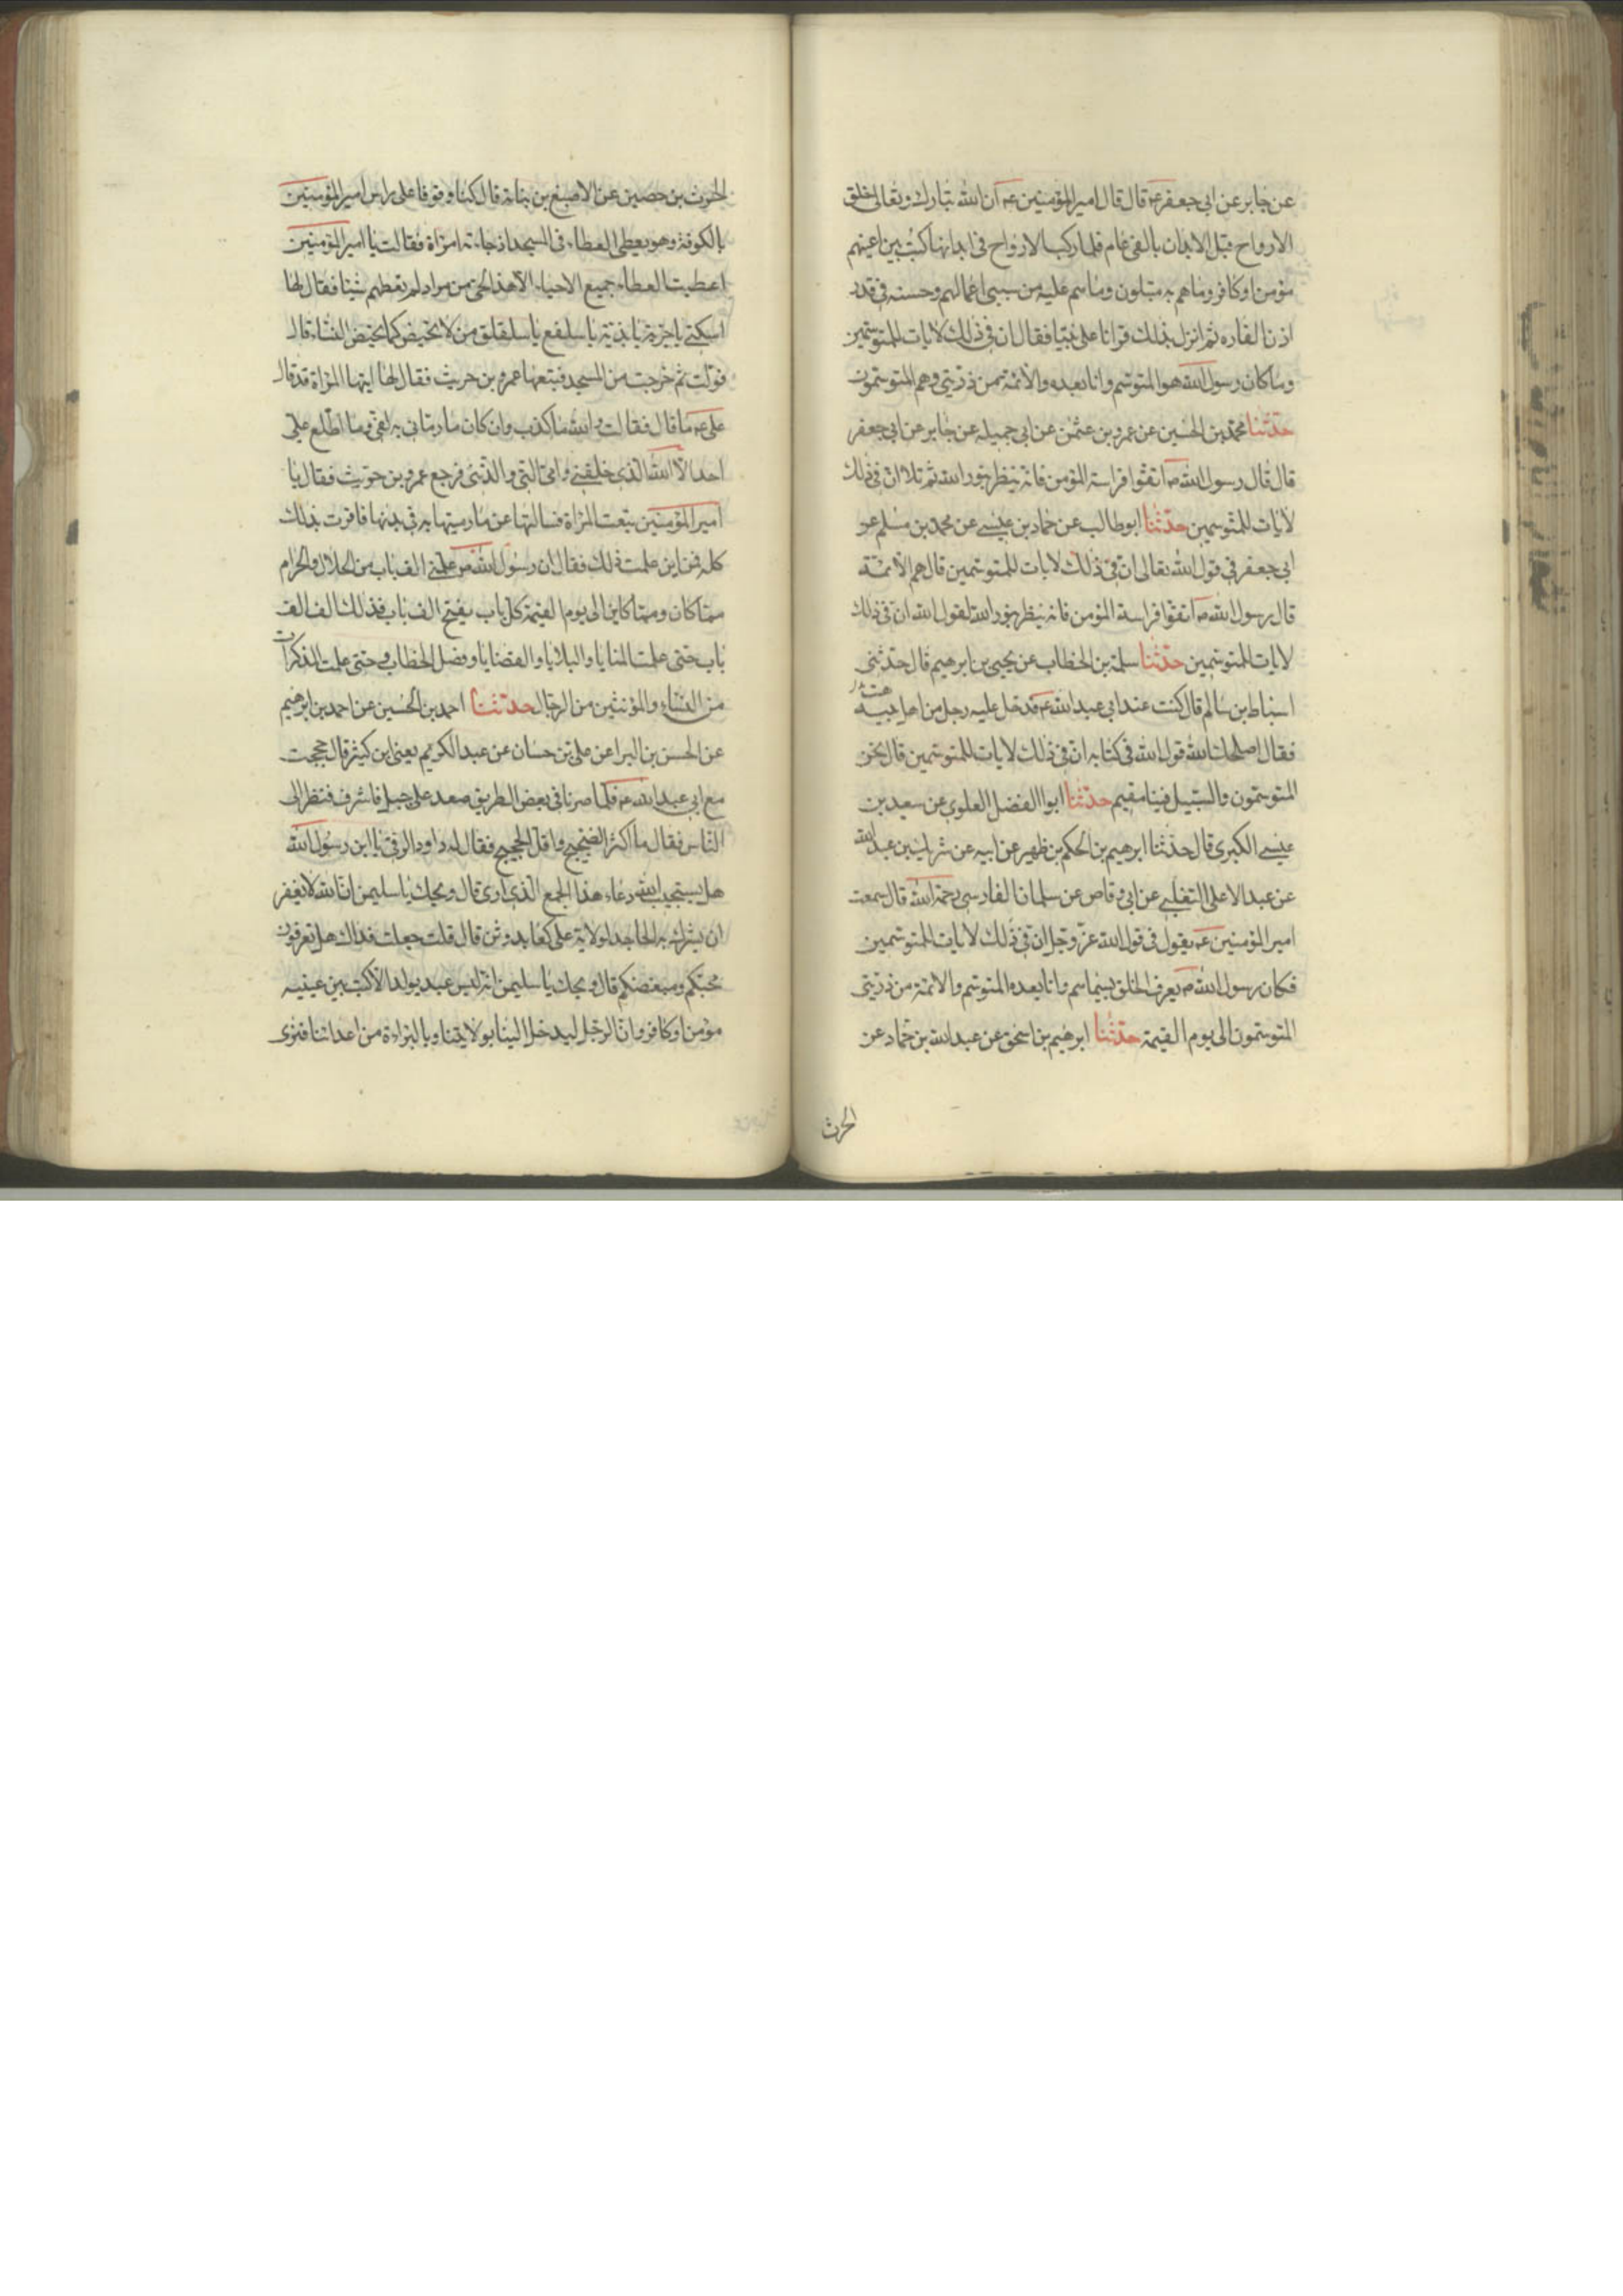 عن جابر عن ابي جعفر عه قال قال امير المؤمنين عه ان الله تبارك وتعالى خلق
الارواح قبل الابدان بالفي عام فلما ركب الارواح في ابدانها كتب بين اعينهم
مؤمن او كافر وما هم به مبتلون وما هم عليه من سيئ اعمالهم وحسنه في قدر
اذن الفاره ثم انزل بذلك قرانا على نبيه فقال ان في ذلك لايات للمتوسمين
وكان رسول الله هو المتوسم وانا بعده والائمة من ذريتي وهم المتوسمون
حدثنا محمد بن الحسين عن عمرو بن عثمن عن ابي جميله عن جابر عن ابي جعفر
قال قال رسول الله ص اتقوا فراسة المؤمن فانه ينظر بنور الله ثم تلا ان في ذلك
لايات للمتوسمين حدثنا ابو طالب عن حماد بن عيسى عن محمد بن مسلم عن
ابي جعفر في قول الله تعالى ان في ذلك لايات للمتوسمين قال هم الائمة
قال رسول الله ص اتقوا فراسة المؤمن فانه ينظر بنور الله لقول الله ان في ذلك
لايات للمتوسمين حدثنا سلمة بن الخطاب عن يحيى بن ابرهيم قال حدثني
اسباط بن سالم قال كنت عند ابي عبد الله عه فدخل عليه رجل من اهل هيت
فقال اصلحك الله قول الله في كتابه ان في ذلك لايات للمتوسمين قال نحن
المتوسمون والسبيل فينا مقيم حدثنا ابوا الفضل العلوي عن سعيد بن
عيسى الكبرى قال حدثنا ابرهيم بن الحكم بن ظهير عن ابيه عن شريك بن عبد الله
عن عبد الاعلى التغلبي عن ابي وقاص عن سلمان الفارسي رحمة الله قال سمعت
امير المؤمنين عه يقول في قول الله عز وجل ان في ذلك لايات للمتوسمين
فكان رسول الله ص يعرف الخلق بسيماهم وانا بعده المتوسم والائمة من ذريتي
المتوسمون الى يوم القيمة حدثنا ابرهيم بن اسحق عن عبد الله بن حماد عن
الحرث
الحرث بن حصين عن الاصبغ بن نباتة قال كنا وقوفا على راس امير المؤمنين
بالكوفة وهو يعطي العطاء في المسجد اذ جاءته امراة فقالت يا امير المؤمنين
اعطيت العطاء جميع الاحياء الا هذا الحي من مراد لم تعطهم شيئا فقال لها
اسكتي يا جرية يا بذية يا سلفع يا سلقلق من لا تحيض كما تحيض النساء قال
فولت ثم خرجت من المسجد فتبعها عمرو بن حريث فقال لها ايتها المراة قد قال
علي عه ما قال فقالت والله ما كذب وان كان ما رماني به لفي وما اطلع علي
احد الا الله الذي خلقني وامي التي ولدتني فرجع عمرو بن حريث فقال يا
امير المؤمنين تبعت المراة فسالتها عن ما رميتها به في بدنها فاقرت بذلك
كله فمن اين علمت ذلك فقال ان رسول الله ص علمني الف باب من الحلال والحرام
مما كان ومما كاين الى يوم القيمة كل باب يفتح الف باب فذلك الف الف
باب حتى علمت المنايا والبلايا والقضايا وفصل الخطاب وحتى علمت المذكرات
من النساء والمؤنثين من الرجال حدثنا احمد بن الحسين عن احمد بن ابرهيم
عن الحسن بن البرا عن علي بن حسان عن عبد الكريم يعني ابن كثير قال حججت
مع ابي عبد الله عه فلما صرنا في بعض الطريق صعد على جبل فاشرف فنظر الى
الناس فقال ما اكثر الضجيج واقل الحجيج فقال له داود الرقي يا ابن رسول الله
هل يستجيب الله دعاء هذا الجمع الذي ارى قال ويحك يا سليمن ان الله لا يغفر
ان يشرك به الجاحد لولاية علي كعابد وثن قال قلت جعلت فداك هل تعرفون
محبكم ومبغضكم قال ويحك يا سليمن انه ليس عبد يولد الا كتب بين عينيه
مؤمن او كافر وان الرجل ليدخل الينا بولايتنا وبالبراءة من اعدائنا فنرى